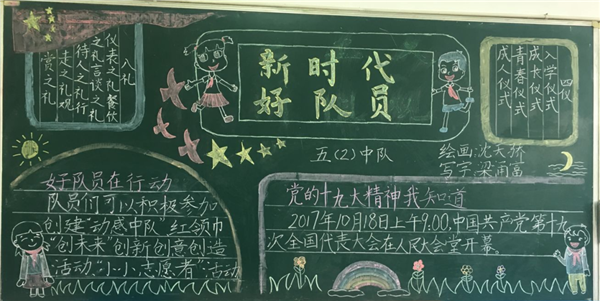 八礼
仪表之礼餐饮
之礼言谈之礼
待人之礼行
走之礼观
赏之礼
新时代
好队员
四仪
入学仪式
成长仪式
青春仪式
成人仪式
五(2)中队
绘画:沈天骄
写字:梁
好队员在行动
队员们可以积极参加
创建“动感中队”红领巾
“创未来”创新创意创造
活动.“小小志愿者”活动
党的十九大精神我知道
2017年10月18日上午9:00,中国共产党第十九
次全国代表大会在人民大会堂开幕.